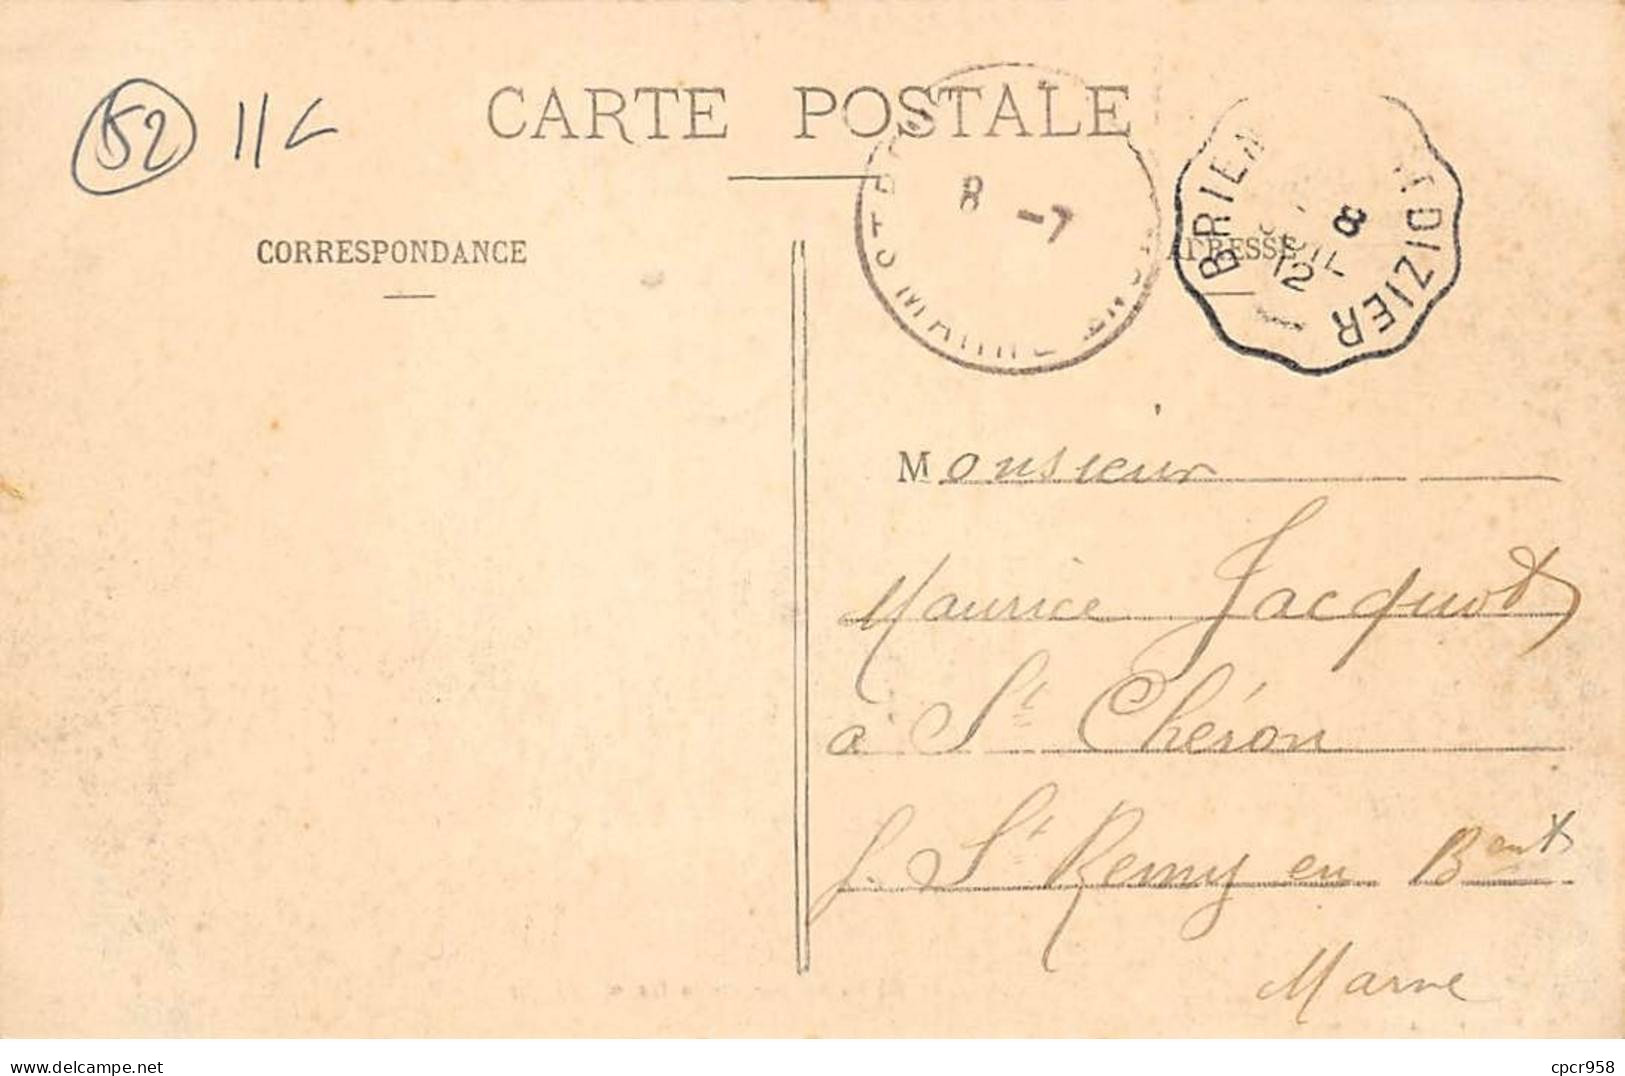 52 11C
CARTE POSTALE
8 -7
BRIEN DIZIER
8
JUIL
12
CORRESPONDANCE
ADRESSE
Monsieur
Maurice Jacquot
à St Chéron
p. St Remy en Bont
Marne
www.delcampe.net
cpcr958